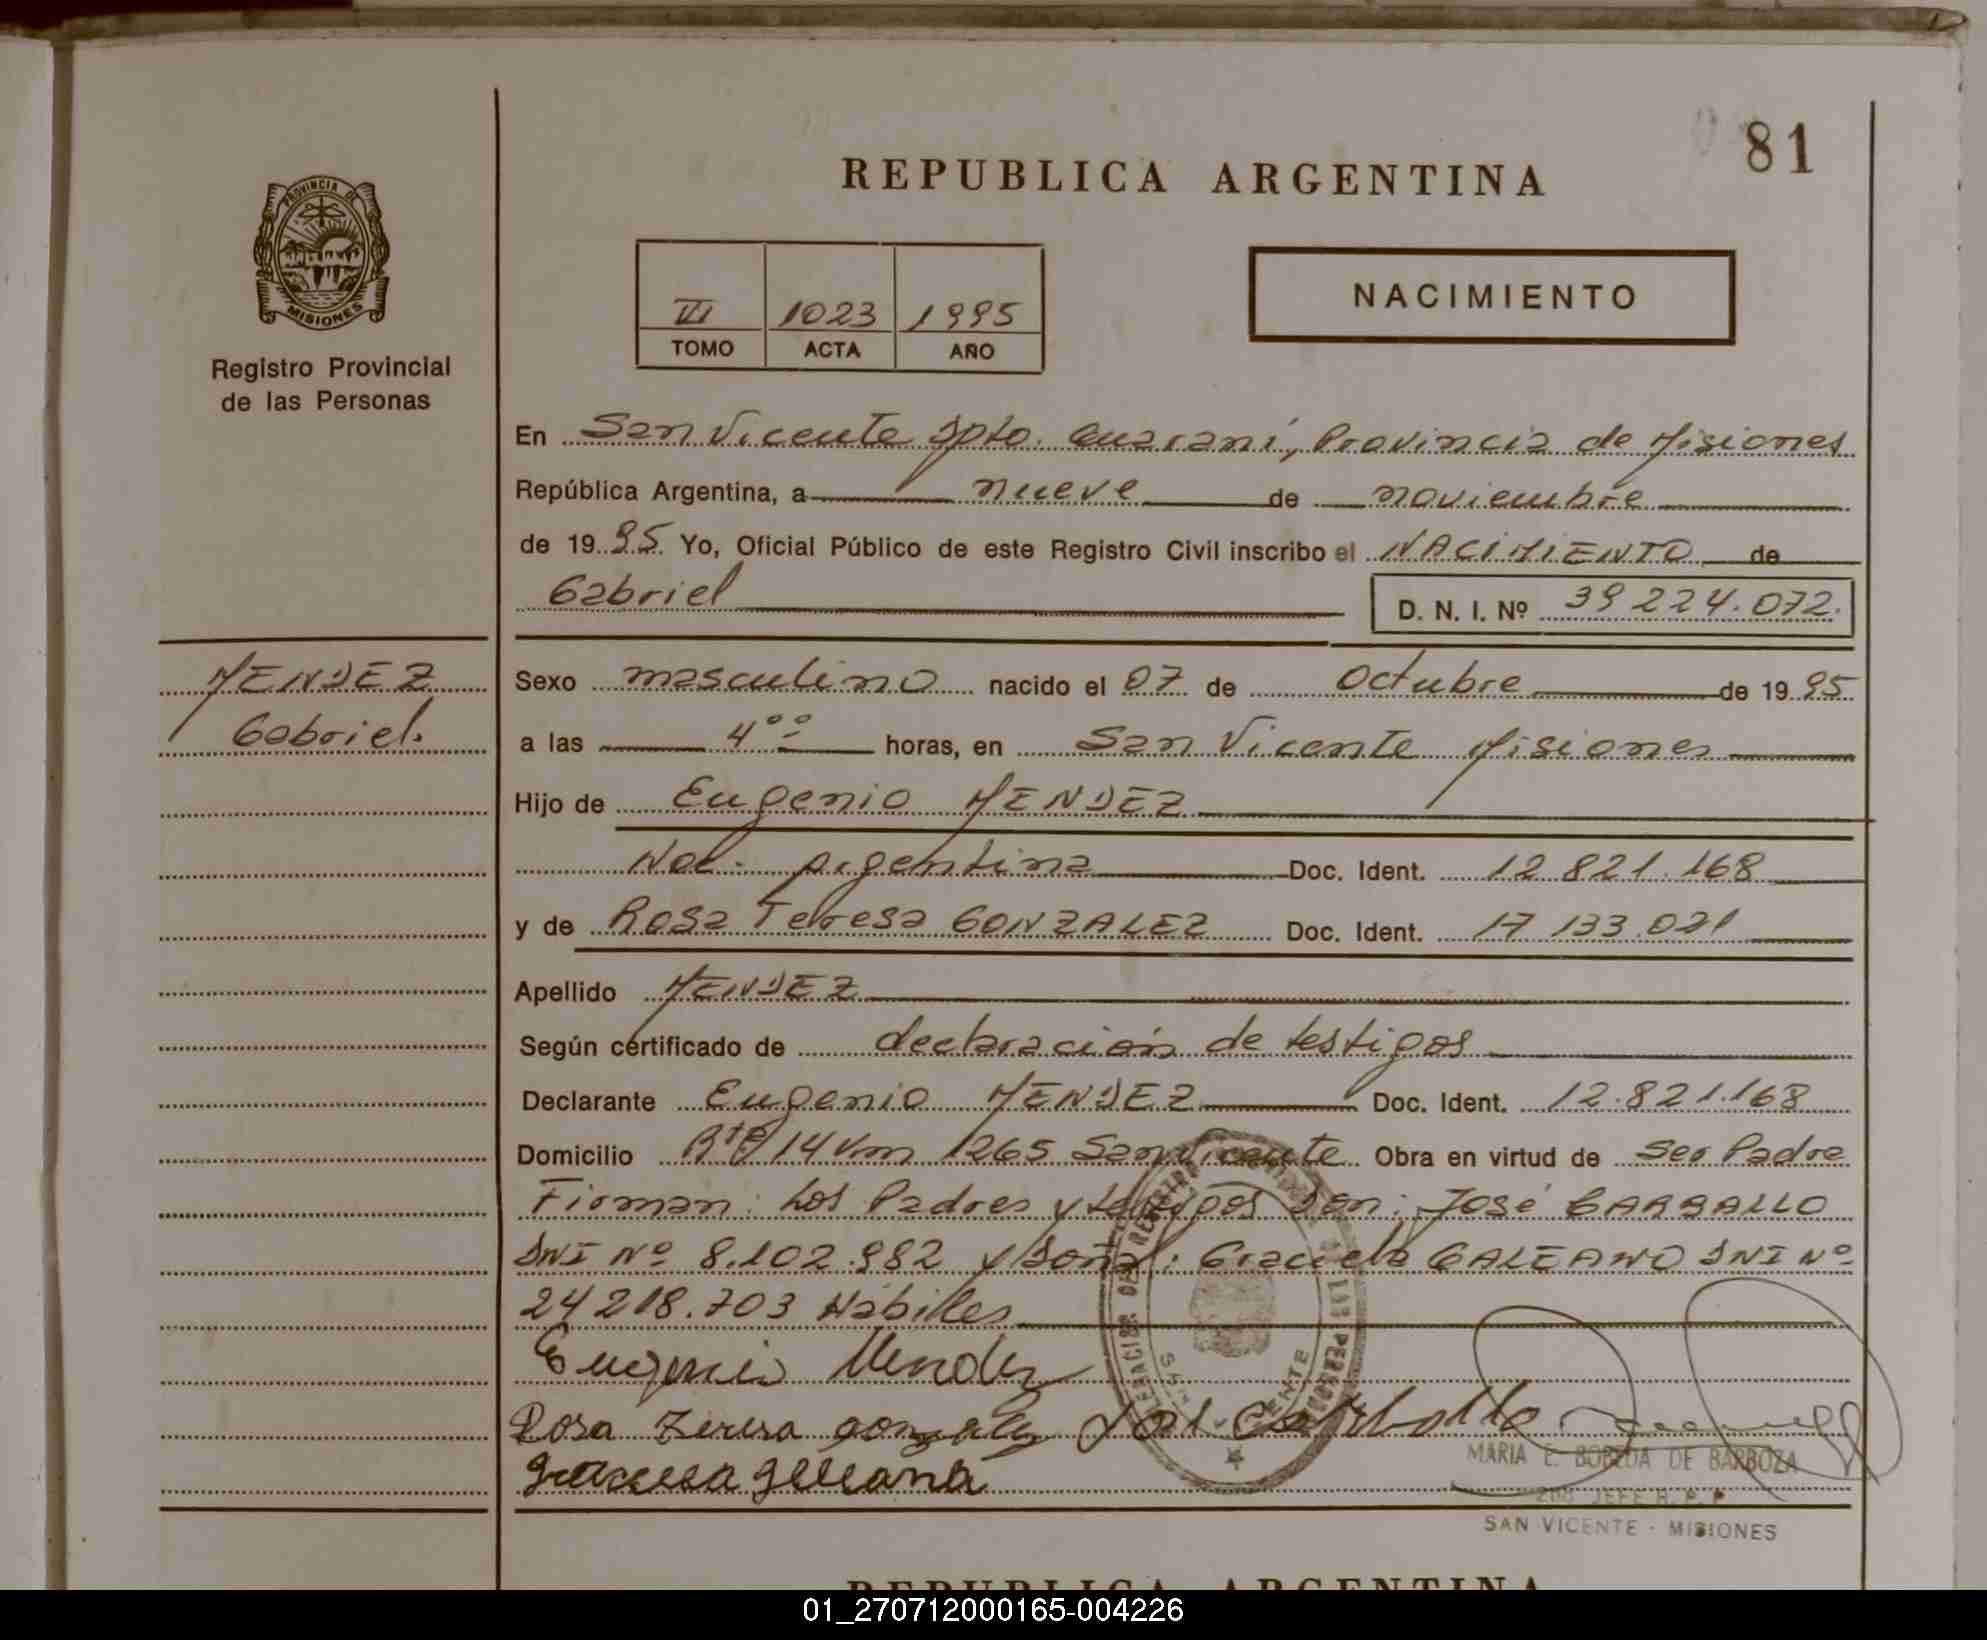 81
REPUBLICA ARGENTINA
PROVINCIA DE
MISIONES
Registro Provincial
de las Personas
VI 1023 1995
TOMO ACTA AÑO
NACIMIENTO
En San Vicente Dpto. Guaraní, Provincia de Misiones
República Argentina, a nueve de noviembre
de 1995 Yo, Oficial Público de este Registro Civil inscribo el NACIMIENTO de
Gabriel D. N. I. Nº 39 224.072.
MENDEZ
Gabriel.
Sexo masculino nacido el 07 de Octubre de 1995
a las 4°° horas, en San Vicente Misiones
Hijo de Eugenio MENDEZ
Nac. Argentina Doc. Ident. 12 821.168
y de Rosa Teresa GONZALEZ Doc. Ident. 17 133.021
Apellido MENDEZ
Según certificado de declaración de testigos
Declarante Eugenio MENDEZ Doc. Ident. 12.821.168
Domicilio Rta 14 Km 1265 San Vicente Obra en virtud de Ser Padre
Firman: Los Padres y testigos Don: José CARBALLO
DNI Nº 8.102.982 y Doña: Graciela GALEANO DNI Nº
24 218.703 Hábiles
Eugenio Mendez
Rosa Teresa gonzalez José Carballo
MARIA E. BOBEDA DE BARBOZA
JEFE R. P. P
SAN VICENTE - MISIONES
REPUBLICA ARGENTINA
01_270712000165-004226